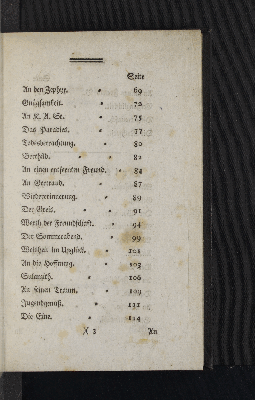 Seite
An den Zephyr. 69
Gnügsamkeit. 72
An K. A. Se. 75
Das Paradies. 77
Todesbetrachtung. 80
Berthild. 82
An einen entfernten Freund. 84
An Gertraud. 87
Wiedererinnerung. 89
Der Greis. 91
Werth der Freundschaft. 94
Der Sommerabend. 99
Weisheit im Unglück. 101
An die Hoffnung. 103
Sulamith. 106
An seinen Traum. 109
Jugendgenuß. 111
Die Eine. 114
X 3 An